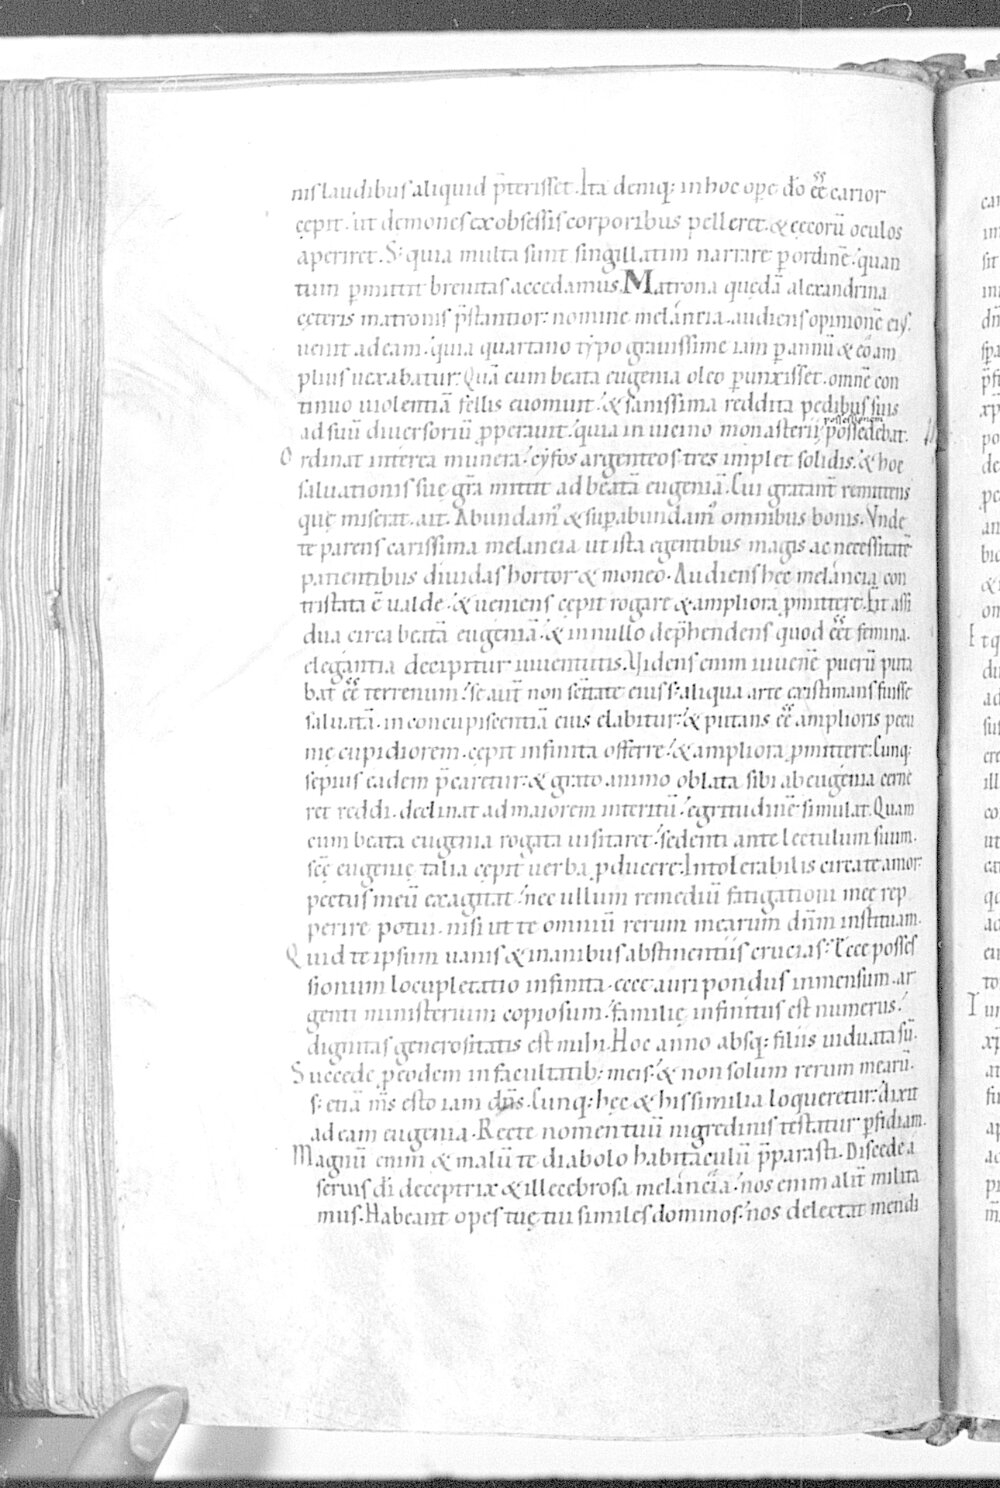 nis laudibus aliquid p̄terisset. Ita demq; in hoc ope d̄o ēē carior
cępit. ut demones ex obsessis corporibus pelleret. & cęcorū oculos
aperiret. S; quia multa sunt singillatim narrare p ordinē. quan
tum pmittit breuitas accedamus. Matrona quędā alexandrina
cęteris matronis p̄stantior: nomine melancia. audiens opinionē eiꝰ.
uenit ad eam. quia quartano typo grauissime iam p annū & eo am
plius uexabatur. Quā cum beata eugenia oleo punxisset. omnē con
tinuo uiolentiā fellis euomuit. & sanissima reddita pedibus suis
ad suū diuersoriū pperauit. quia in uicino monasterii possessionem possedebat.
Ordinat interea munera. cyfos argenteos tres implet solidis. & hoc
saluationis suę gr̄a mittit ad beatā eugeniā. Cui gratant̄ remittens
quę miserat. ait. Abundamꝰ & supabundamꝰ omnibus bonis. Vnde
te parens carissima melancia ut ista egentibus magis ac necessitatē
patientibus diuidas hortor & moneo. Audiens hęc melancia con
tristata ē ualde. & ueniens cępit rogare & ampliora pmittere. Fit assi
dua circa beatā eugeniā. & in nullo dep̄hendens quod ēēt femina.
elegantia decipitur iuuentutis. Videns enim iuuenē puerū puta
bat ēē terrenum. se aut̄ non sc̄itate eius s; aliqua arte existimans fuisse
saluatā. in concupiscentiā eius elabitur. & putans ēē amplioris pecu
nię cupidiorem. cępit infinita offerre. & ampliora pmittere. Cunq;
sepius eadem p̄caretur. & grato animo oblata sibi ab eugenia cerne
ret reddi. declinat ad maiorem interitū. egritudinē simulat. Quam
cum beata eugenia rogata uisitaret. sedenti ante lectulum suum.
sc̄ę eugenię talia cępit uerba pducere. Intolerabilis circa te amor
pectus meū exagitat. nec ullum remediū fatigationi mee rep
perire potui. nisi ut te omniū rerum mearum dn̄m instituam.
Quid te ipsum uanis & inanibus abstinentiis crucias. Ecce posses
sionum locupletatio infinita. ecce auri pondus inmensum. ar
genti ministerium copiosum. familię infinitus est numerus.
dignitas generositatis est mihi. Hoc anno absq; filiis uiduata sū.
Succede peodem in facultatib; meis. & non solum rerum mearū.
s; etiā m̄s esto iam dn̄s. Cunq; hęc & his similia loqueretur. dixit
ad eam eugenia. Recte nomen tuū nigredinis testatur pfidiam.
Magnū enim & malū te diabolo habitaculū p̄parasti. Discede a
seruis dī deceptrix & illecebrosa melancia. nos enim alit̄ milita
mus. Habeant opes tuę tui similes dominos. nos delectat mendi